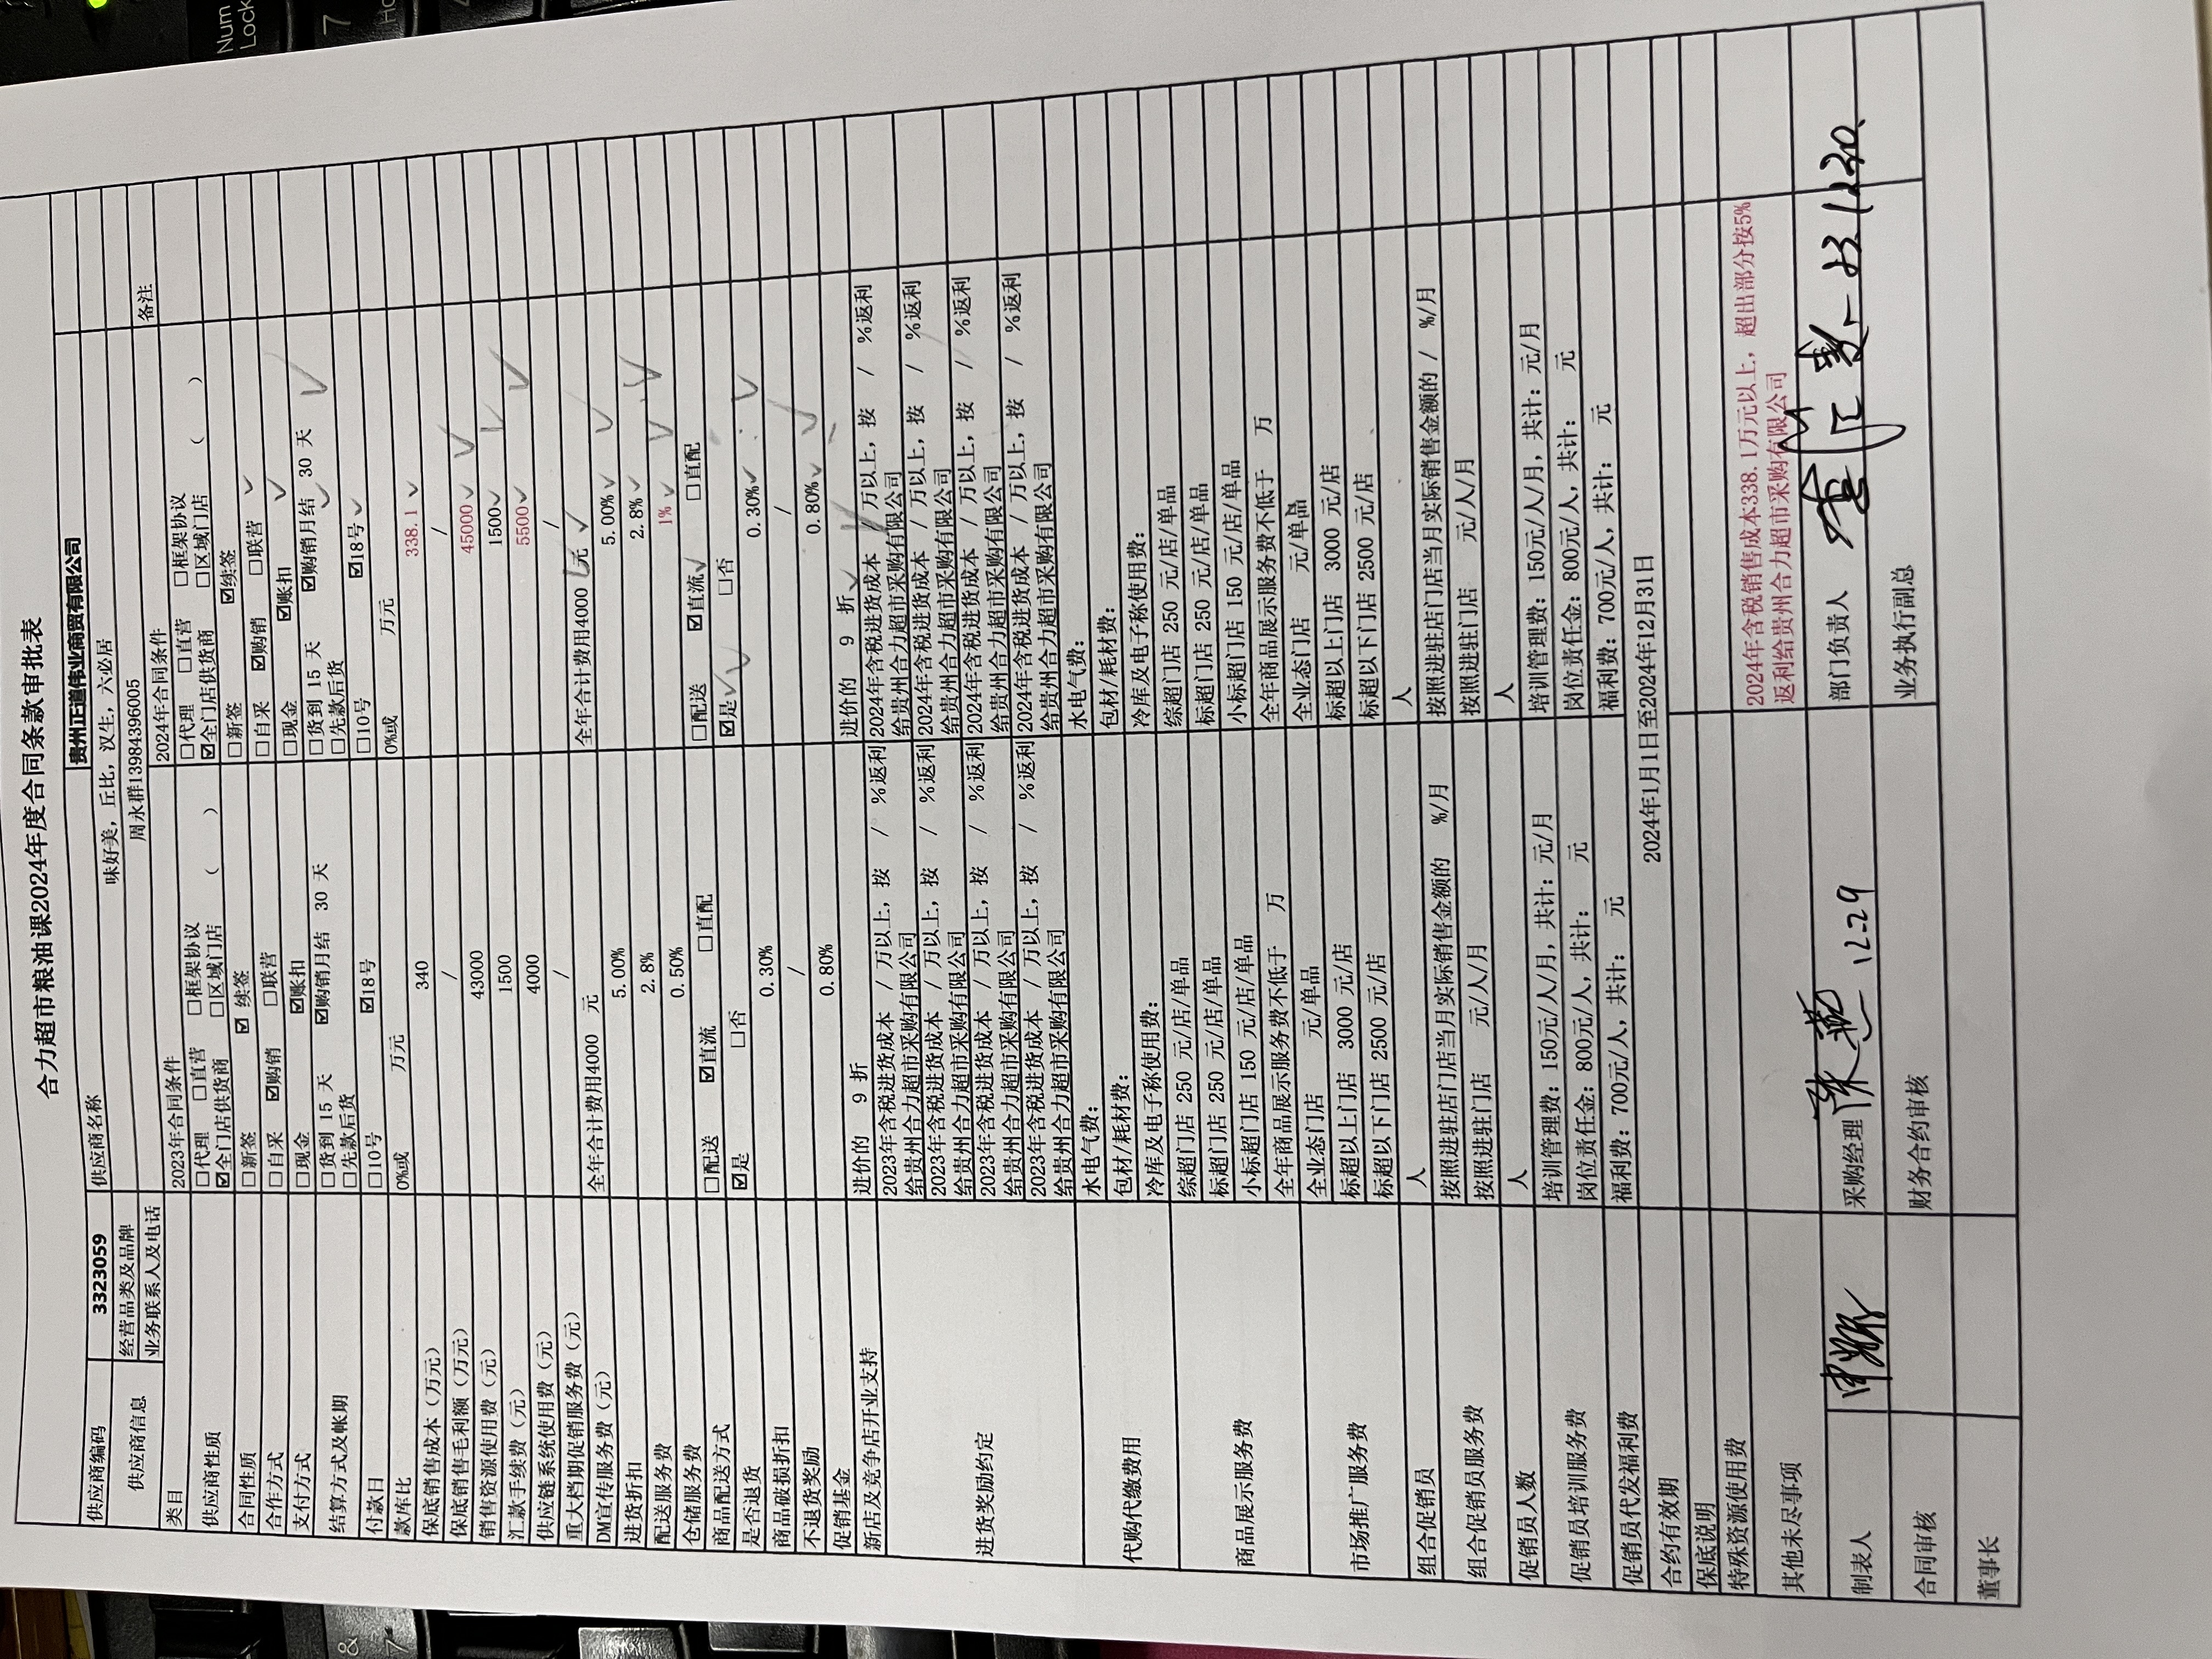 合力超市粮油课2024年度合同条款审批表
供应商编码 3323059 供应商名称 贵州正道伟业商贸有限公司
供应商信息 经营品类及品牌 味好美，丘比，汉生，六必居
业务联系人及电话 周永群13984396005
类目 2023年合同条件 2024年合同条件 备注
供应商性质 □代理 □直营 □框架协议 □代理 □直营 □框架协议
☑全门店供货商 □区域门店 （ ） ☑全门店供货商 □区域门店 （ ）
合同性质 □新签 ☑续签 □新签 ☑续签
合作方式 □自采 ☑购销 □联营 □自采 ☑购销 □联营
支付方式 □现金 ☑账扣 □现金 ☑账扣
结算方式及帐期 □货到 15 天 ☑购销月结 30 天 □货到 15 天 ☑购销月结 30 天
□先款后货 □先款后货
付款日 □10号 ☑18号 □10号 ☑18号
款库比 0%或 万元 0%或 万元
保底销售成本（万元） 340 338.1
保底销售毛利额（万元） / /
销售资源使用费（元） 43000 45000
汇款手续费（元） 1500 1500
供应链系统使用费（元） 4000 5500
重大档期促销服务费（元） / /
DM宣传服务费（元） 全年合计费用4000 元 全年合计费用4000 元
进货折扣 5.00% 5.00%
配送服务费 2.8% 2.8%
仓储服务费 0.50% 1%
商品配送方式 □配送 ☑直流 □直配 □配送 ☑直流 □直配
是否退货 ☑是 □否 ☑是 □否
商品破损折扣 0.30% 0.30%
不退货奖励 / /
促销基金 0.80% 0.80%
新店及竞争店开业支持 进价的 9 折 进价的 9 折
进货奖励约定 2023年含税进货成本 / 万以上，按 / %返利 2024年含税进货成本 / 万以上，按 / %返利
给贵州合力超市采购有限公司 给贵州合力超市采购有限公司
2023年含税进货成本 / 万以上，按 / %返利 2024年含税进货成本 / 万以上，按 / %返利
给贵州合力超市采购有限公司 给贵州合力超市采购有限公司
2023年含税进货成本 / 万以上，按 / %返利 2024年含税进货成本 / 万以上，按 / %返利
给贵州合力超市采购有限公司 给贵州合力超市采购有限公司
2023年含税进货成本 / 万以上，按 / %返利 2024年含税进货成本 / 万以上，按 / %返利
给贵州合力超市采购有限公司 给贵州合力超市采购有限公司
代购代缴费用 水电气费： 水电气费：
包材/耗材费： 包材/耗材费：
冷库及电子称使用费： 冷库及电子称使用费：
商品展示服务费 综超门店 250 元/店/单品 综超门店 250 元/店/单品
标超门店 250 元/店/单品 标超门店 250 元/店/单品
小标超门店 150 元/店/单品 小标超门店 150 元/店/单品
全年商品展示服务费不低于 万 全年商品展示服务费不低于 万
市场推广服务费 全业态门店 元/单品 全业态门店 元/单品
标超以上门店 3000 元/店 标超以上门店 3000 元/店
标超以下门店 2500 元/店 标超以下门店 2500 元/店
组合促销员 人 人
组合促销员服务费 按照进驻店门店当月实际销售金额的 %/月 按照进驻店门店当月实际销售金额的 / %/月
按照进驻门店 元/人/月 按照进驻门店 元/人/月
促销员人数 人 人
促销员培训服务费 培训管理费：150元/人/月，共计：元/月 培训管理费：150元/人/月，共计：元/月
岗位责任金：800元/人，共计： 元 岗位责任金：800元/人，共计： 元
促销员代发福利费 福利费：700元/人，共计： 元 福利费：700元/人，共计： 元
合约有效期 2024年1月1日至2024年12月31日
保底说明
特殊资源使用费
其他未尽事项 2024年含税销售成本338.1万元以上，超出部分按5%
返利给贵州合力超市采购有限公司
制表人 采购经理 12.29 部门负责人
合同审核 财务合约审核 业务执行副总
董事长
Num
Lock
7
&
7